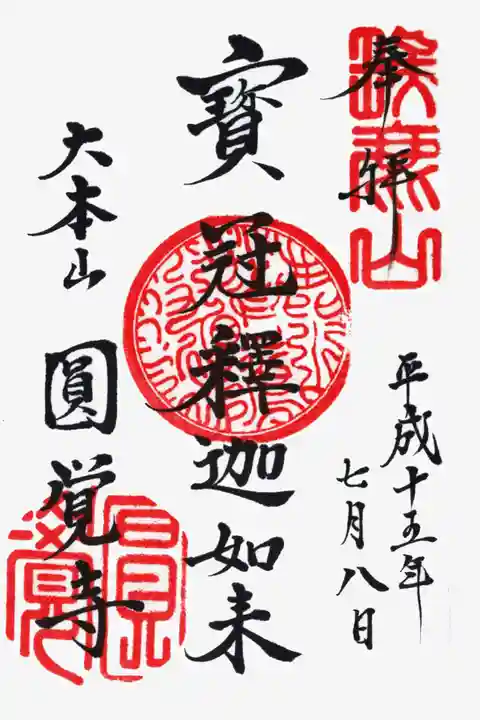 奉拝
平成十五年
七月八日
寶冠釋迦如来
大本山
圓覚寺
瑞鹿山